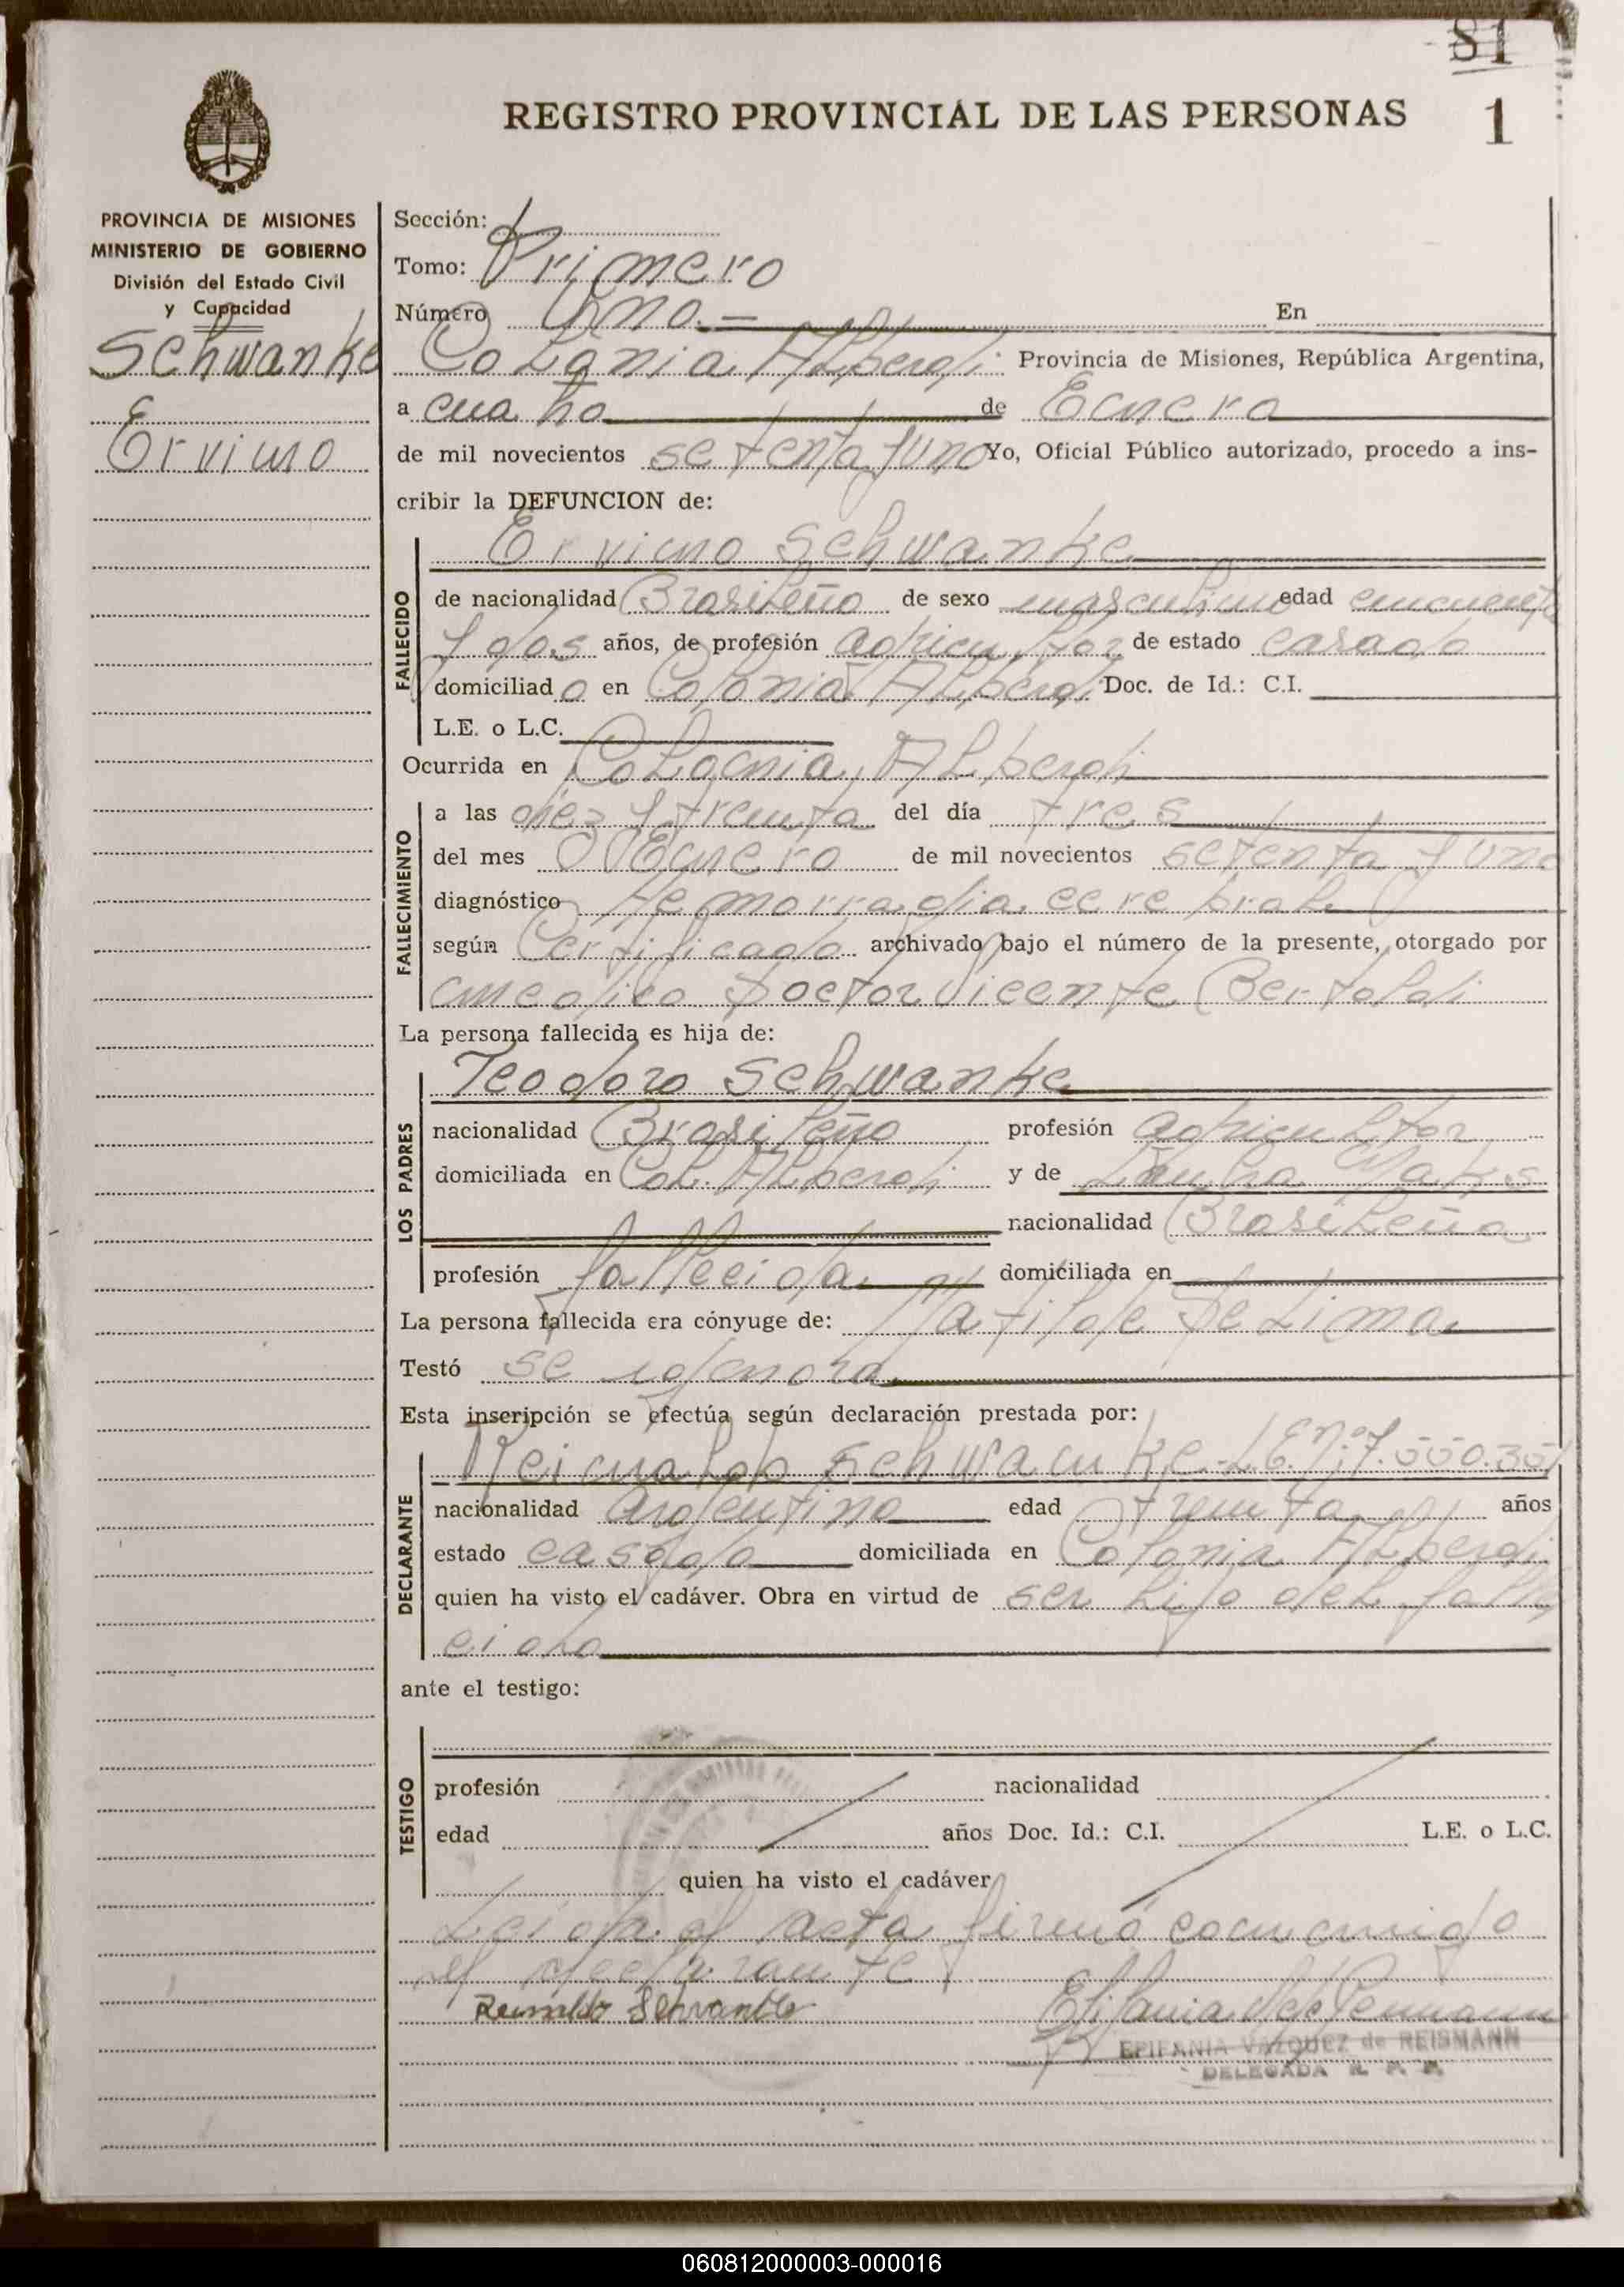 81
REGISTRO PROVINCIAL DE LAS PERSONAS 1
PROVINCIA DE MISIONES
MINISTERIO DE GOBIERNO
División del Estado Civil
y Capacidad
Schwanke
Ervino
Sección:
Tomo: Primero
Número Uno.= En
Colonia Alberdi Provincia de Misiones, República Argentina,
a cuatro de Enero
de mil novecientos setenta y uno Yo, Oficial Público autorizado, procedo a ins-
cribir la DEFUNCION de:
Ervino Schwanke
FALLECIDO
de nacionalidad Brasileño de sexo masculino edad cincuenta
y dos años, de profesión agricultor de estado casado
domiciliado en Colonia Alberdi Doc. de Id.: C.I.
L.E. o L.C.
Ocurrida en Colonia Alberdi
FALLECIMIENTO
a las diez y treinta del día tres
del mes Enero de mil novecientos setenta y uno
diagnóstico Hemorragia cerebral
según Certificado archivado bajo el número de la presente, otorgado por
medico Doctor Vicente Bertoldi
La persona fallecida es hija de:
LOS PADRES
Teodoro Schwanke
nacionalidad Brasileño profesión agricultor
domiciliada en Col. Alberdi y de
nacionalidad Brasileña
profesión fallecida domiciliada en
La persona fallecida era cónyuge de: Matilde De Lima
Testó se ignora
Esta inscripción se efectúa según declaración prestada por:
DECLARANTE
Reinaldo Schwanke-L.E.Nº7.
nacionalidad argentino edad treinta años
estado casado domiciliada en Colonia Alberdi
quien ha visto el cadáver. Obra en virtud de ser hijo del falle
cido
ante el testigo:
TESTIGO
profesión nacionalidad
edad años Doc. Id.: C.I. L.E. o L.C.
quien ha visto el cadáver
Leida el acta firmó conmigo
el declarante
Reinaldo Schwanke
EPIFANIA VAZQUEZ de REISMANN
DELEGADA R. P. P.
060812000003-000016